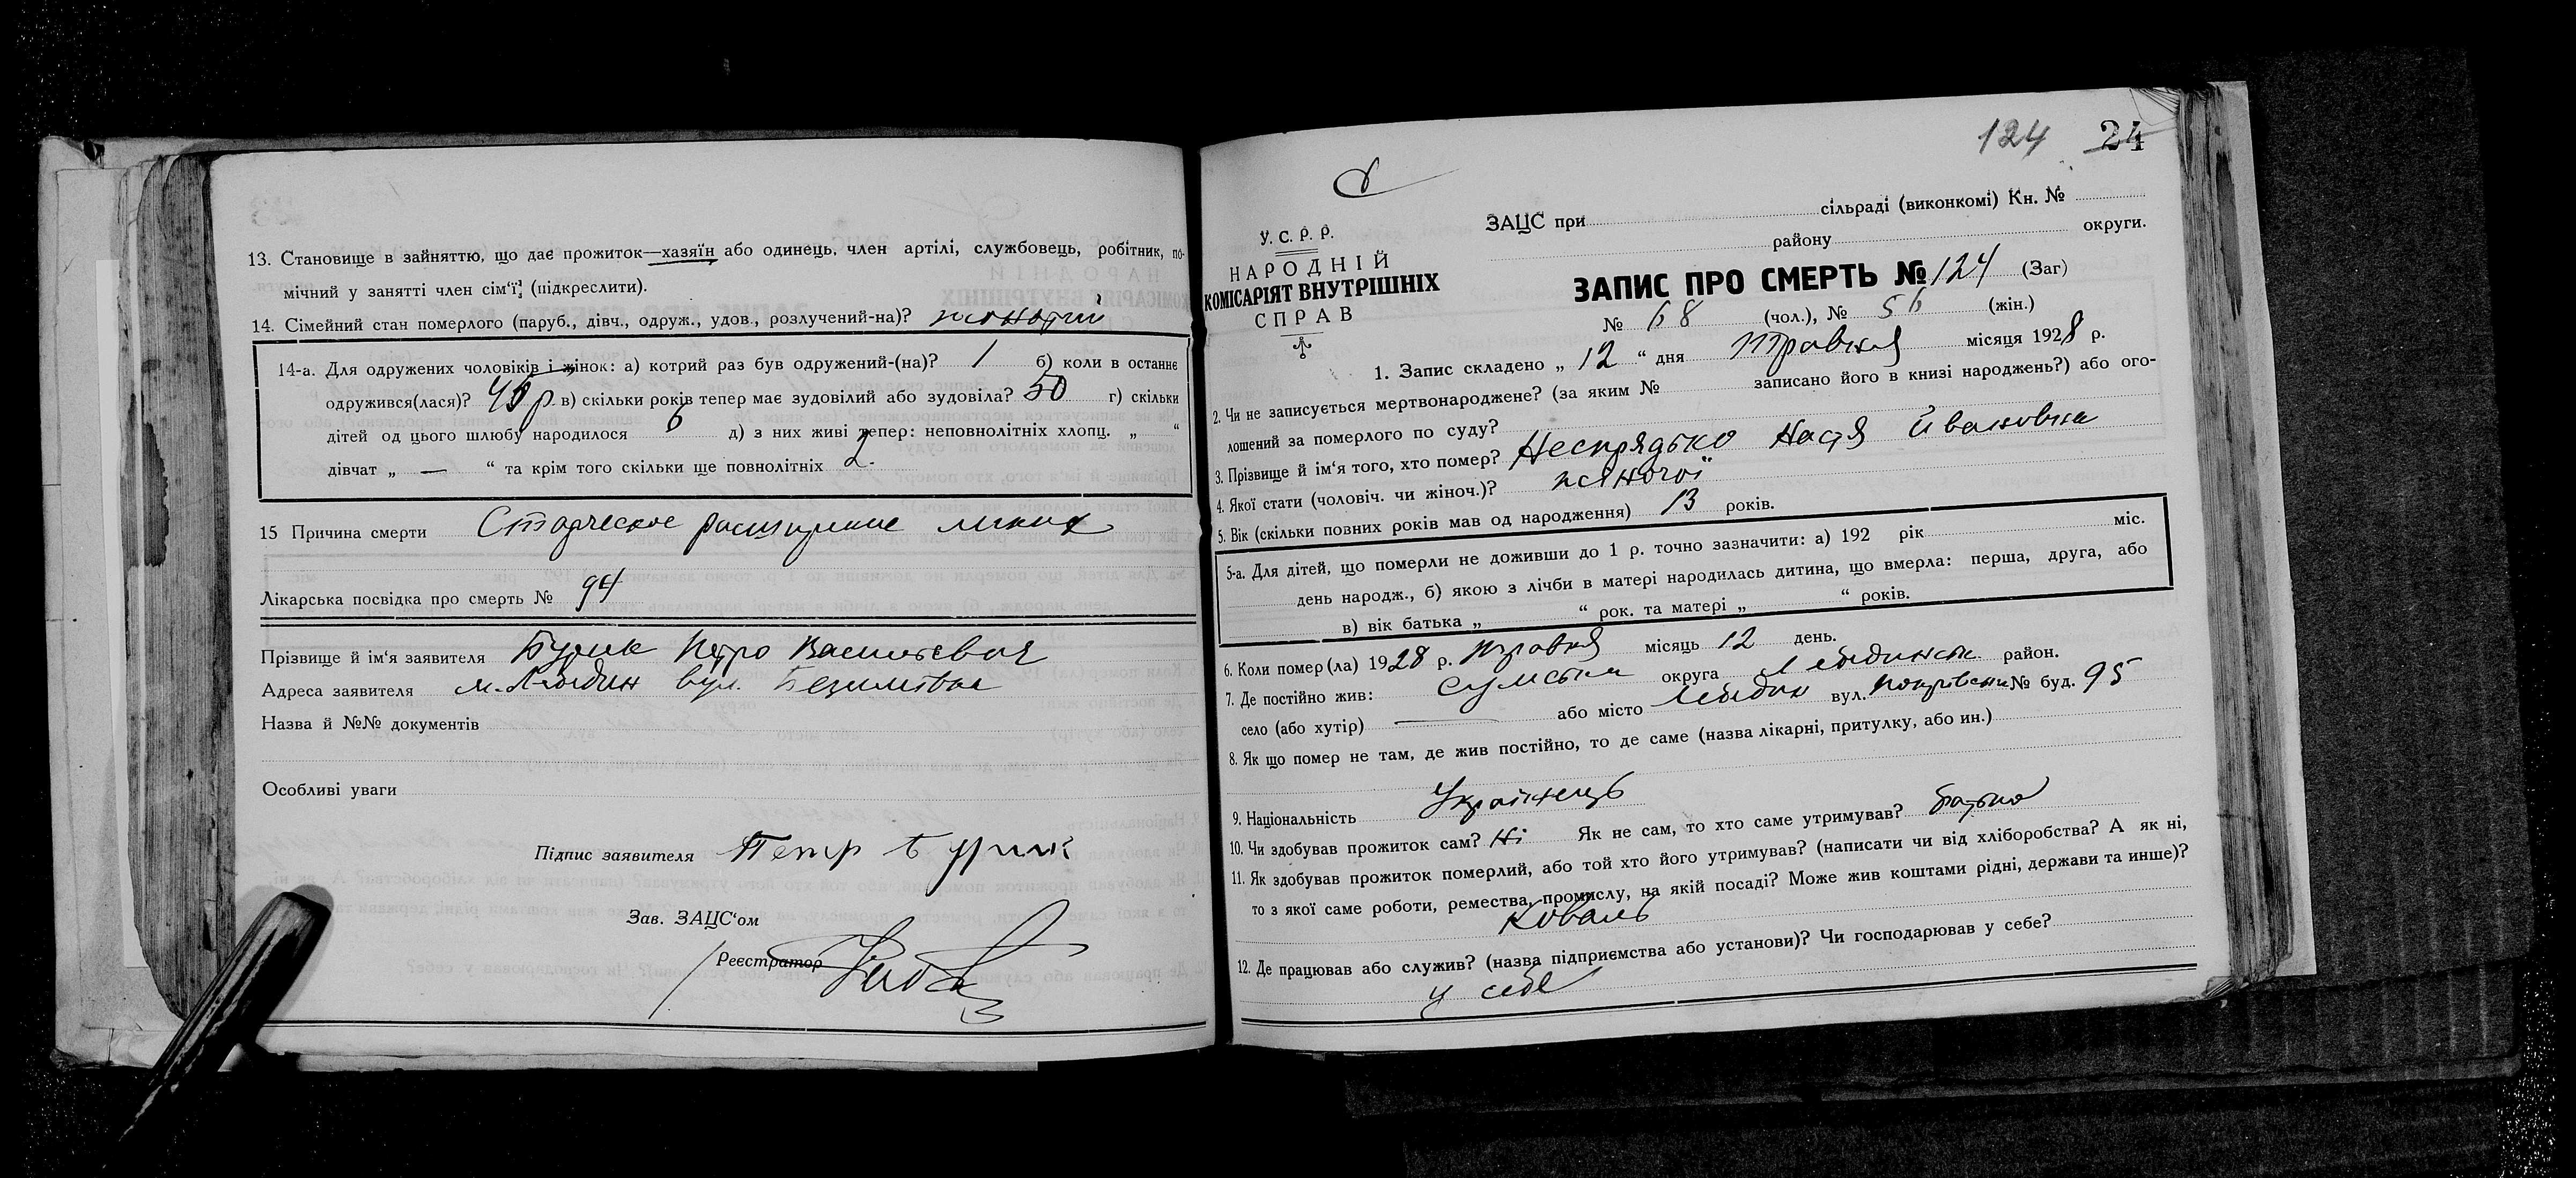 13. Становище в зайняттю, що дає прожиток—хазяїн або одинець, член артілі, службовець, робітник, по-
мічний у занятті член сім'ї (підкреслити).
14. Сімейний стан померлого (паруб., дівч., одруж., удов., розлучений-на)? жонатий
14-а. Для одружених чоловіків і жінок: а) котрий раз був одружений-(на)? 1 б) коли в останнє
одружився(лася)? р. в) скільки років тепер має зудовілий або зудовіла? 50 г) скільки
дітей од цього шлюбу народилося 6 д) з них живі тепер: неповнолітніх хлопц. „ “
дівчат „ — “ та крім того скільки ще повнолітніх 2.
15 Причина смерти Старческое расширение легких
Лікарська посвідка про смерть № 94
Прізвище й ім'я заявителя Бурик Петро Васильевич
Адреса заявителя м. Лебедин вул.
Назва й №№ документів
Особливі уваги
Підпис заявителя Петр Бурик
Зав. ЗАЦС'ом
Реєстратор
124 24
У. С. Р. Р.
НАРОДНІЙ
КОМІСАРІЯТ ВНУТРІШНІХ
СПРАВ
ЗАЦС при сільраді (виконкомі) Кн. №
району округи.
ЗАПИС ПРО СМЕРТЬ № 124 (Заг)
№ 68 (чол.), № 56 (жін.)
1. Запис складено „ 12 “ дня травня місяця 1928 р.
2. Чи не записується мертвонароджене? (за яким № записано його в книзі народжень?) або ого-
лошений за померлого по суду?
3. Прізвище й ім'я того, хто помер? Неспрядько Настя Йвановна
4. Якої стати (чоловіч. чи жіноч.)? жіночої
5. Вік (скільки повних років мав од народження) 13 років.
5-а. Для дітей, що померли не доживши до 1 р. точно зазначити: а) 192 рік міс.
день народж., б) якою з лічби в матері народилась дитина, що вмерла: перша, друга, або
в) вік батька „ “ рок. та матері „ “ років.
6. Коли помер(ла) 1928 р. травня місяць 12 день.
7. Де постійно жив: Сумська округа Лебединськ. район.
село (або хутір) — або місто Лебедин вул. Покрівська № буд. 95
8. Як що помер не там, де жив постійно, то де саме (назва лікарні, притулку, або ин.)
9. Національність Українець
10. Чи здобував прожиток сам? Ні Як не сам, то хто саме утримував? батько
11. Як здобував прожиток померлий, або той хто його утримував? (написати чи від хліборобства? А як ні,
то з якої саме роботи, ремества, промислу, на якій посаді? Може жив коштами рідні, держави та инше)?
Коваль
12. Де працював або служив? (назва підприємства або установи)? Чи господарював у себе?
у себе